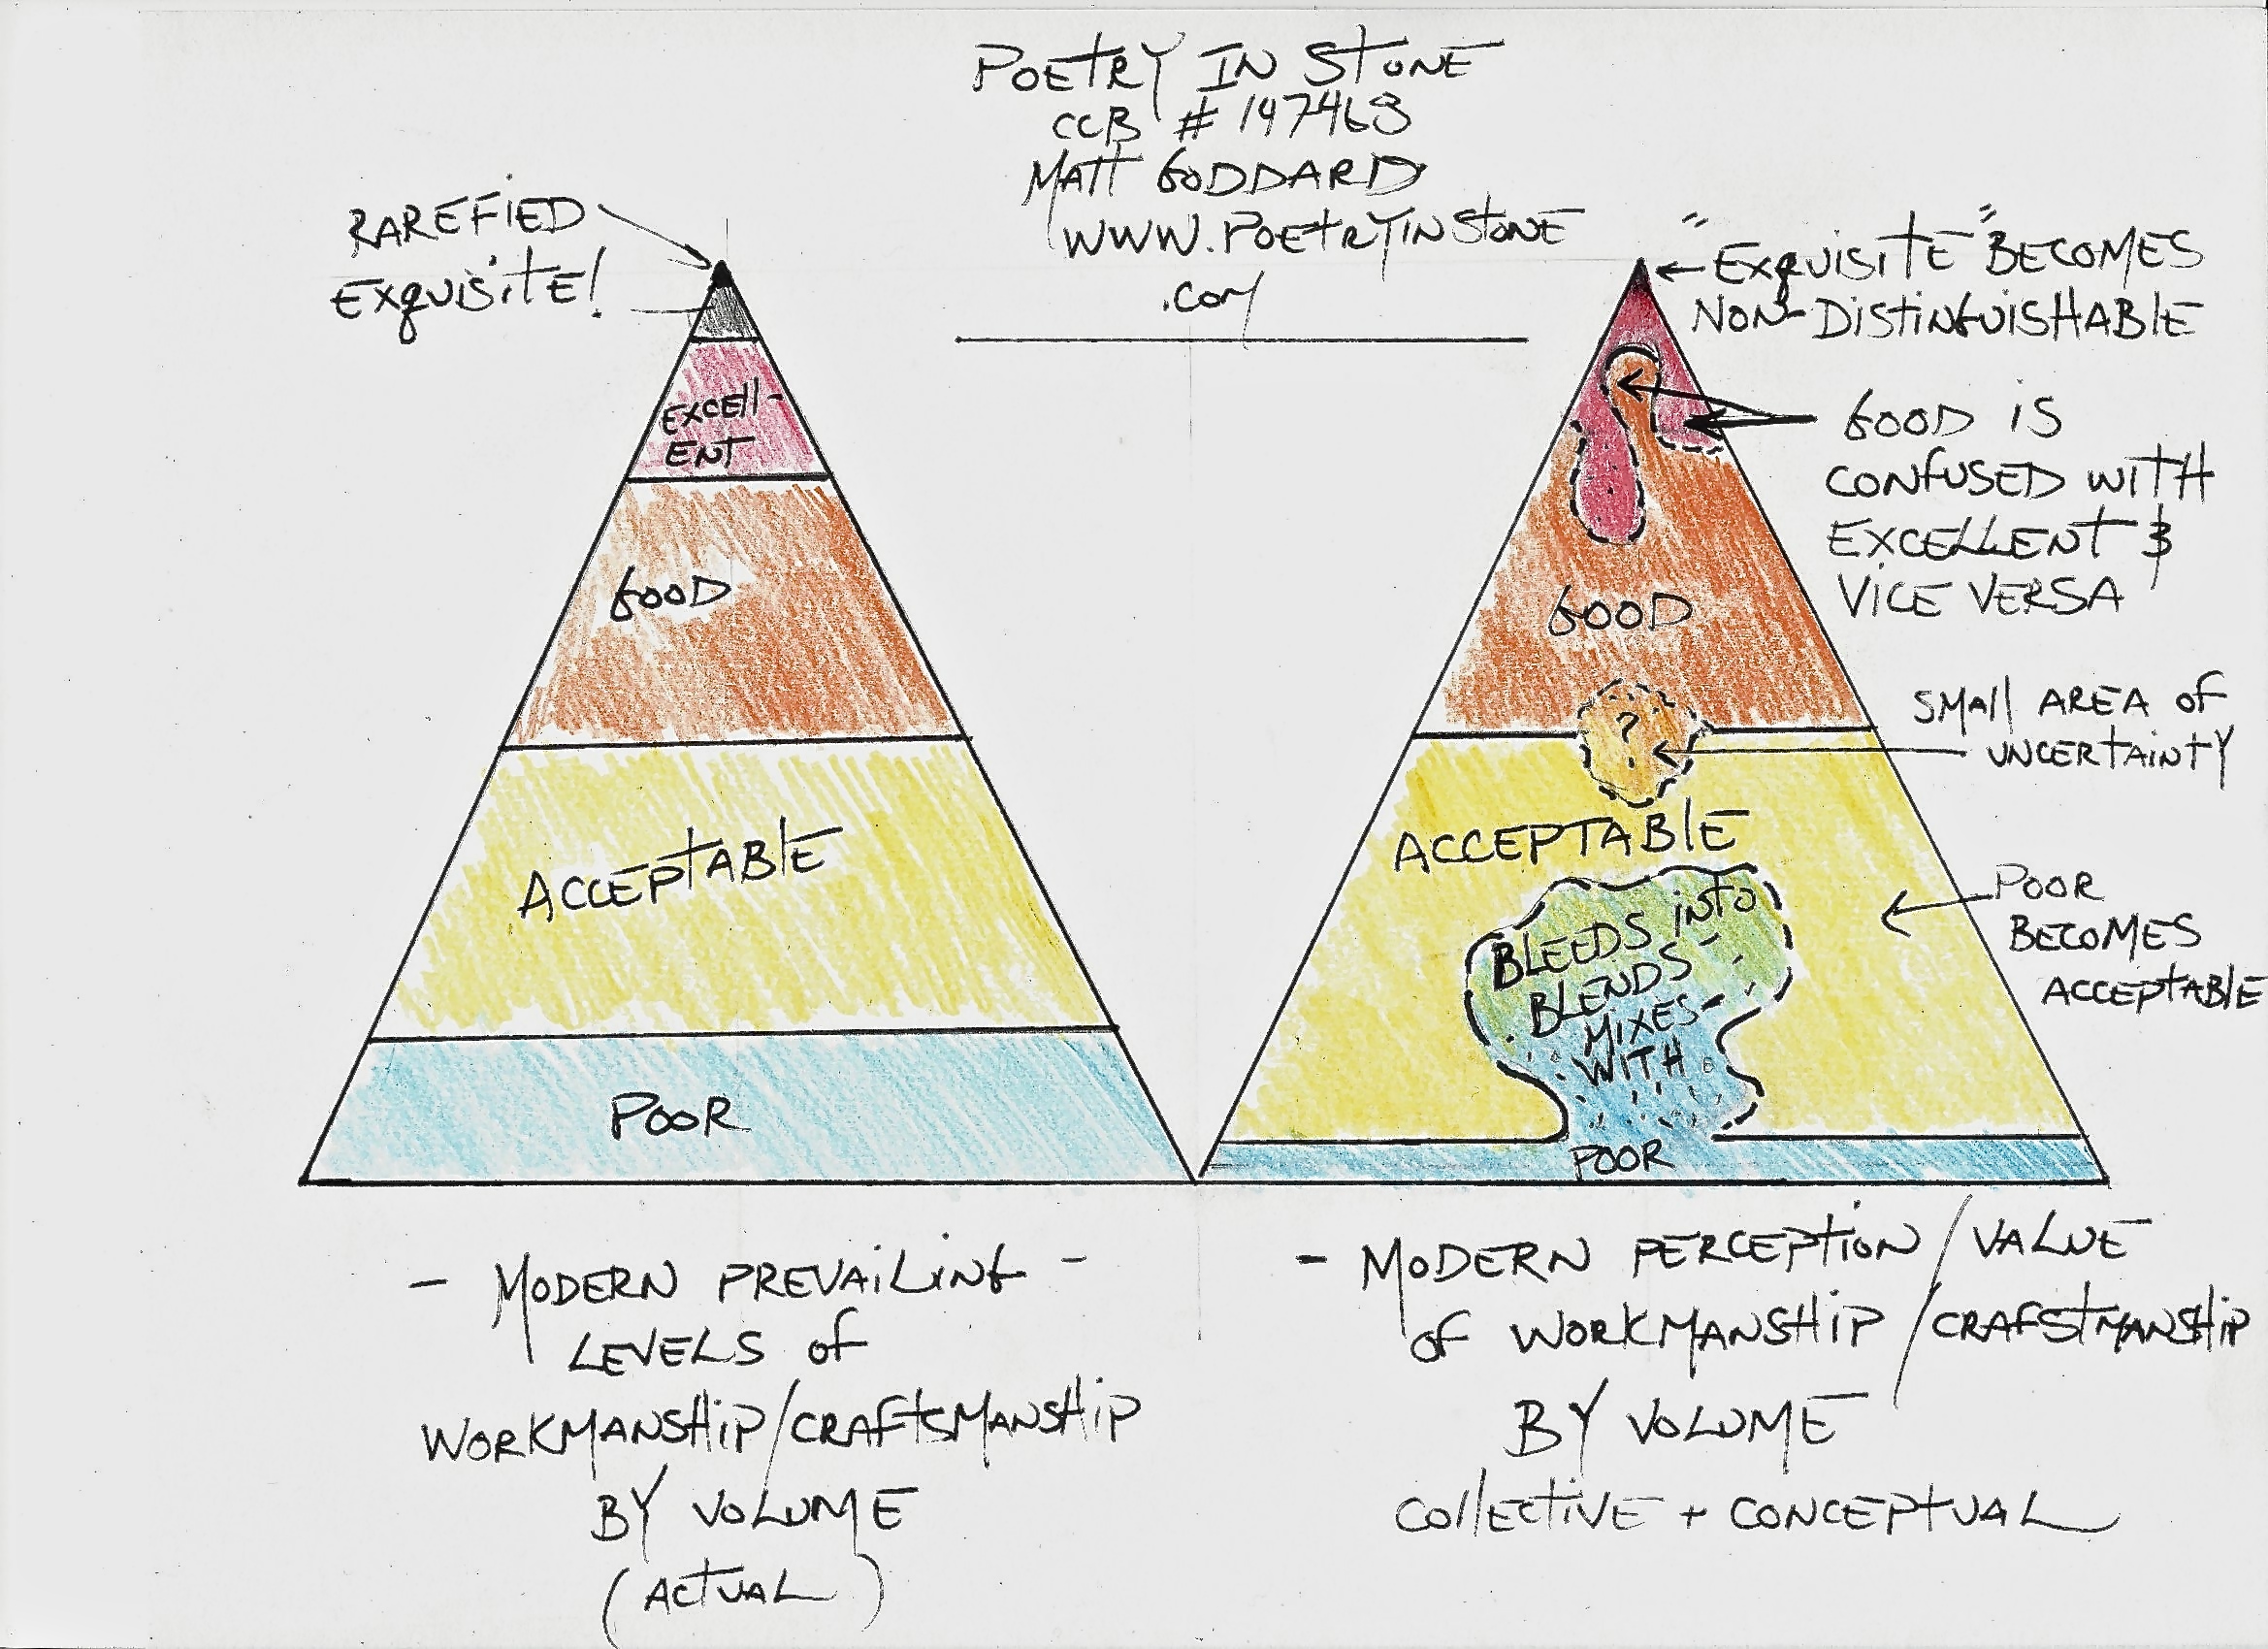 POETRY IN STONE
CCB #
MATT GODDARD
WWW.POETRYINSTONE
.COM
RAREFIED
EXQUISITE!
EXCELL-
ENT
GOOD
ACCEPTABLE
POOR
- MODERN PREVAILING -
LEVELS OF
WORKMANSHIP/CRAFTSMANSHIP
BY VOLUME
(ACTUAL)
"EXQUISITE" BECOMES
NON-DISTINGUISHABLE
GOOD IS
CONFUSED WITH
EXCELLENT &
VICE VERSA
GOOD
?
SMALL AREA OF
UNCERTAINTY
ACCEPTABLE
BLEEDS INTO
BLENDS -
MIXES -
WITH
POOR
BECOMES
ACCEPTABLE
POOR
- MODERN PERCEPTION/VALUE
OF WORKMANSHIP/CRAFSTMANSHIP
BY VOLUME
COLLECTIVE + CONCEPTUAL